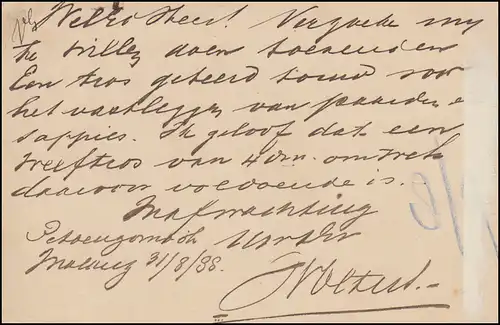 WelEd Heer! Verzoeke my
te willen doen toezenden
Een tros geteerd touw voor
het vastleggen van paarden e
sappies. Ik geloof dat een
treeftros van 4 dm. omtrek
daarvoor voldoende is.
Inafwachting
Petoengombok
Malang 31/8/98.